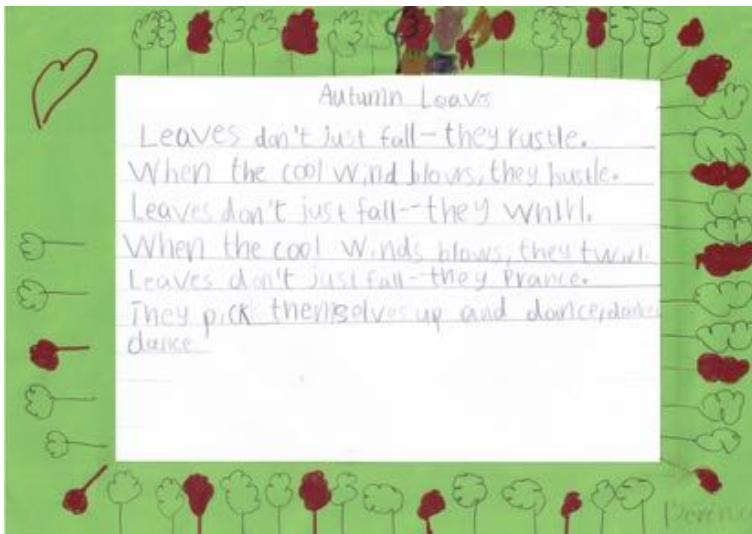 Autumn Leavs
Leaves don't just fall--they rustle.
When the cool wind blows, they hustle.
Leaves don't just fall--they whirl.
When the cool winds blows, they twirl.
Leaves don't just fall--they prance.
They pick themselves up and dance, dance
dance